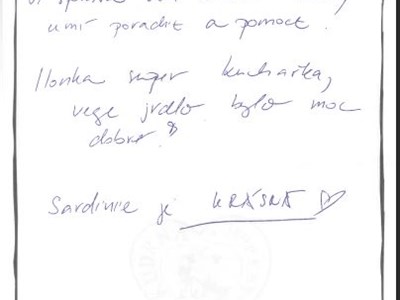 umí poradit a pomoct.
Ilonka super kuchařka,
vege jídlo bylo moc
dobré!
Sardinie je KRÁSNÁ